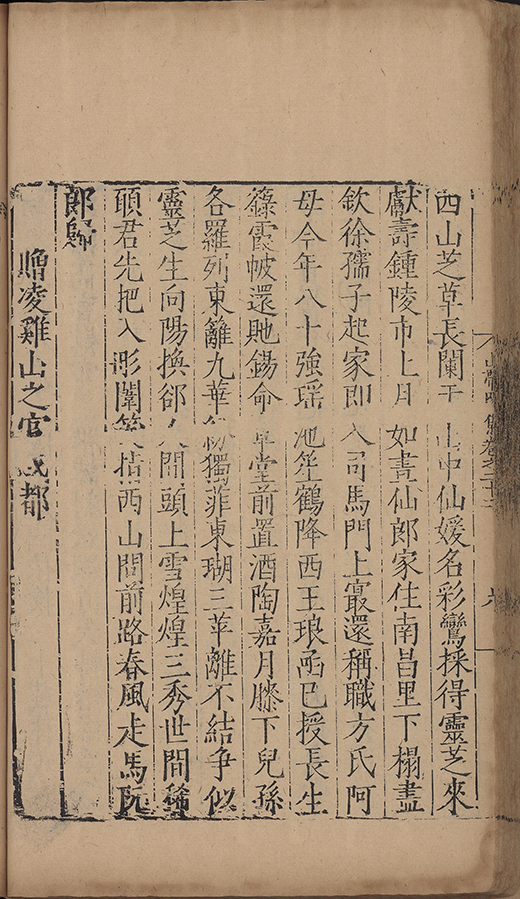 西山芝草長闌干山中仙媛名彩鸞採得靈芝來
獻壽鍾陵市上月如晝仙郎家住南昌里下榻盡
欽徐孺子起家即入司馬門上㝡還稱職方氏阿
母今年八十強瑶池笙鶴降西王琅函已授長生
籙霞帔還貤錫命章堂前置酒陶嘉月膝下兒孫
各羅列東籬九華紛獨菲東瑚三苹離不結争似
靈芝生向陽換郤人間頭上雪煌煌三秀世間稀
頎君先把入彤闈笑指西山問前路春風走馬阮
郎歸
贈凌雞山之官成都